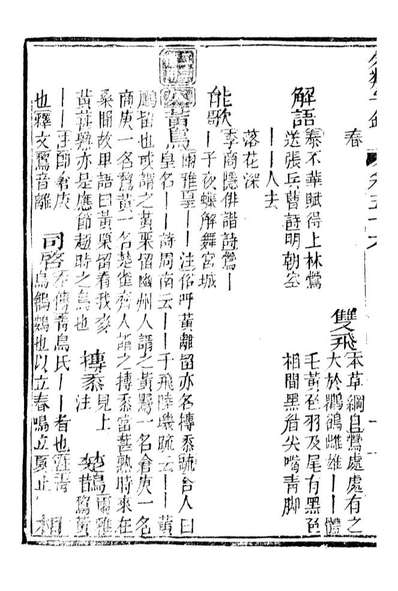 春
雙飛
本草綱目鶯處處有之
大於鸜鵒雌雄――體
毛黃色羽及尾有黑色
相間黑眉尖嘴青脚
解語
泰不華賦得上林鶯
送張兵曹詩明朝空
――人去
落花深
能歌
李商隱俳諧詩鶯―
―子夜蝶解舞宮城
黃鳥
爾雅皇――注俗呼黃離留亦名摶黍疏舍人曰
皇名――詩周南云――于飛陸璣疏云――黃
鸝留也或謂之黃栗留幽州人謂之黃鸎一名倉庚一名
商庚一名鵹黃一名楚雀齊人謂之摶黍當葚熟時來在
桑間故里語曰黃栗留看我麥
黃葚熟亦是應節趨時之鳥也
摶黍
見上
注
楚雀
爾雅
鵹黃
――注即倉庚
也釋文鵹音離
司啓
左傳青鳥氏――者也注青
鳥鶬鴳也以立春鳴立夏止